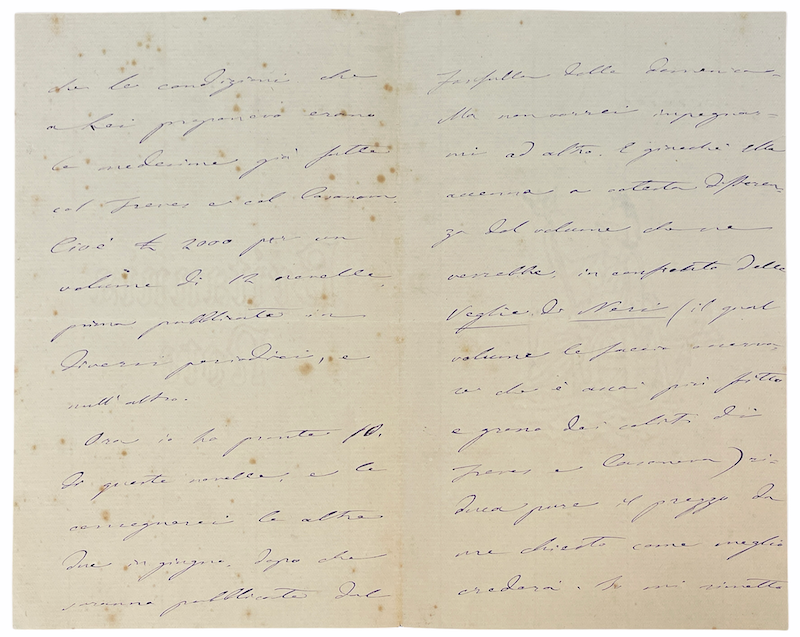 che le condizioni che
a Lei proponevo erano
le medesime già fatte
col Treves e col Casanova.
Cioè £ 2000 per un
volume di 12 novelle,
prima pubblicate in
diversi periodici, e
null'altro.
Ora io ho pronte 10.
di queste novelle, e le
consegnerei le altre
due in giugno, dopo che
saranno pubblicate dal
Fanfulla della domenica.
Ma non vorrei impegnar-
mi ad altro. E giacchè Ella
accenna a cotesta differen-
za del volume che ne
verrebbe, in confronto delle
Veglie di Neri (il qual
volume le faccio osserva-
re che è assai più fitto
e grosso dei soliti di
Treves e Casanova) ri-
duca pure il prezzo da
me chiesto come meglio
crederà. Io mi rimetto